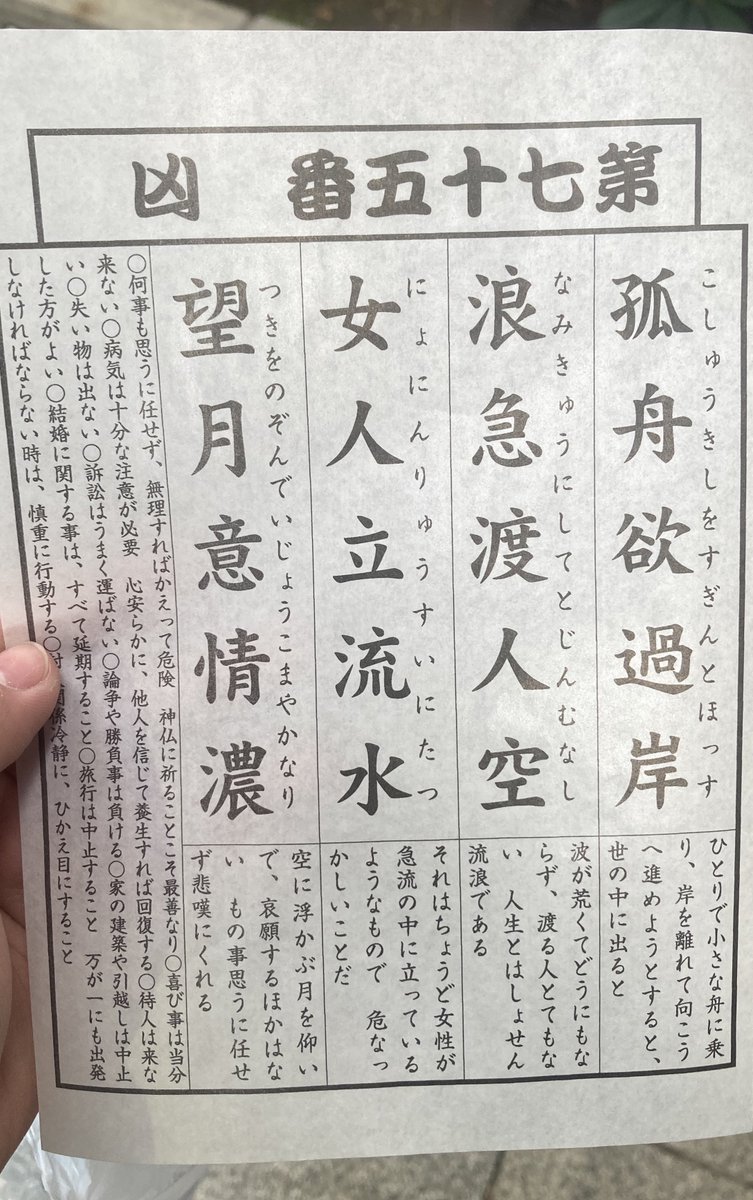 第七十五番 凶
こしゅうきしをすぎんとほっす
孤舟欲過岸
ひとりで小さな舟に乗
り、岸を離れて向こう
へ進めようとすると、
世の中に出ると
なみきゅうにしてとじんむなし
浪急渡人空
波が荒くてどうにもな
らず、渡る人とてもな
い　人生とはしょせん
流浪である
にょにんりゅうすいにたつ
女人立流水
それはちょうど女性が
急流の中に立っている
ようなもので　危なっ
かしいことだ
つきをのぞんでいじょうこまやかなり
望月意情濃
空に浮かぶ月を仰い
で、哀願するほかはな
い　もの事思うに任せ
ず悲嘆にくれる
〇何事も思うに任せず、無理すればかえって危険　神仏に祈ることこそ最善なり〇喜び事は当分
来ない〇病気は十分な注意が必要　心安らかに、他人を信じて養生すれば回復する〇待人は来な
い〇失い物は出ない〇訴訟はうまく運ばない〇論争や勝負事は負ける〇家の建築や引越しは中止
した方がよい〇結婚に関する事は、すべて延期すること〇旅行は中止すること　万が一にも出発
しなければならない時は、慎重に行動する〇 関係冷静に、ひかえ目にすること